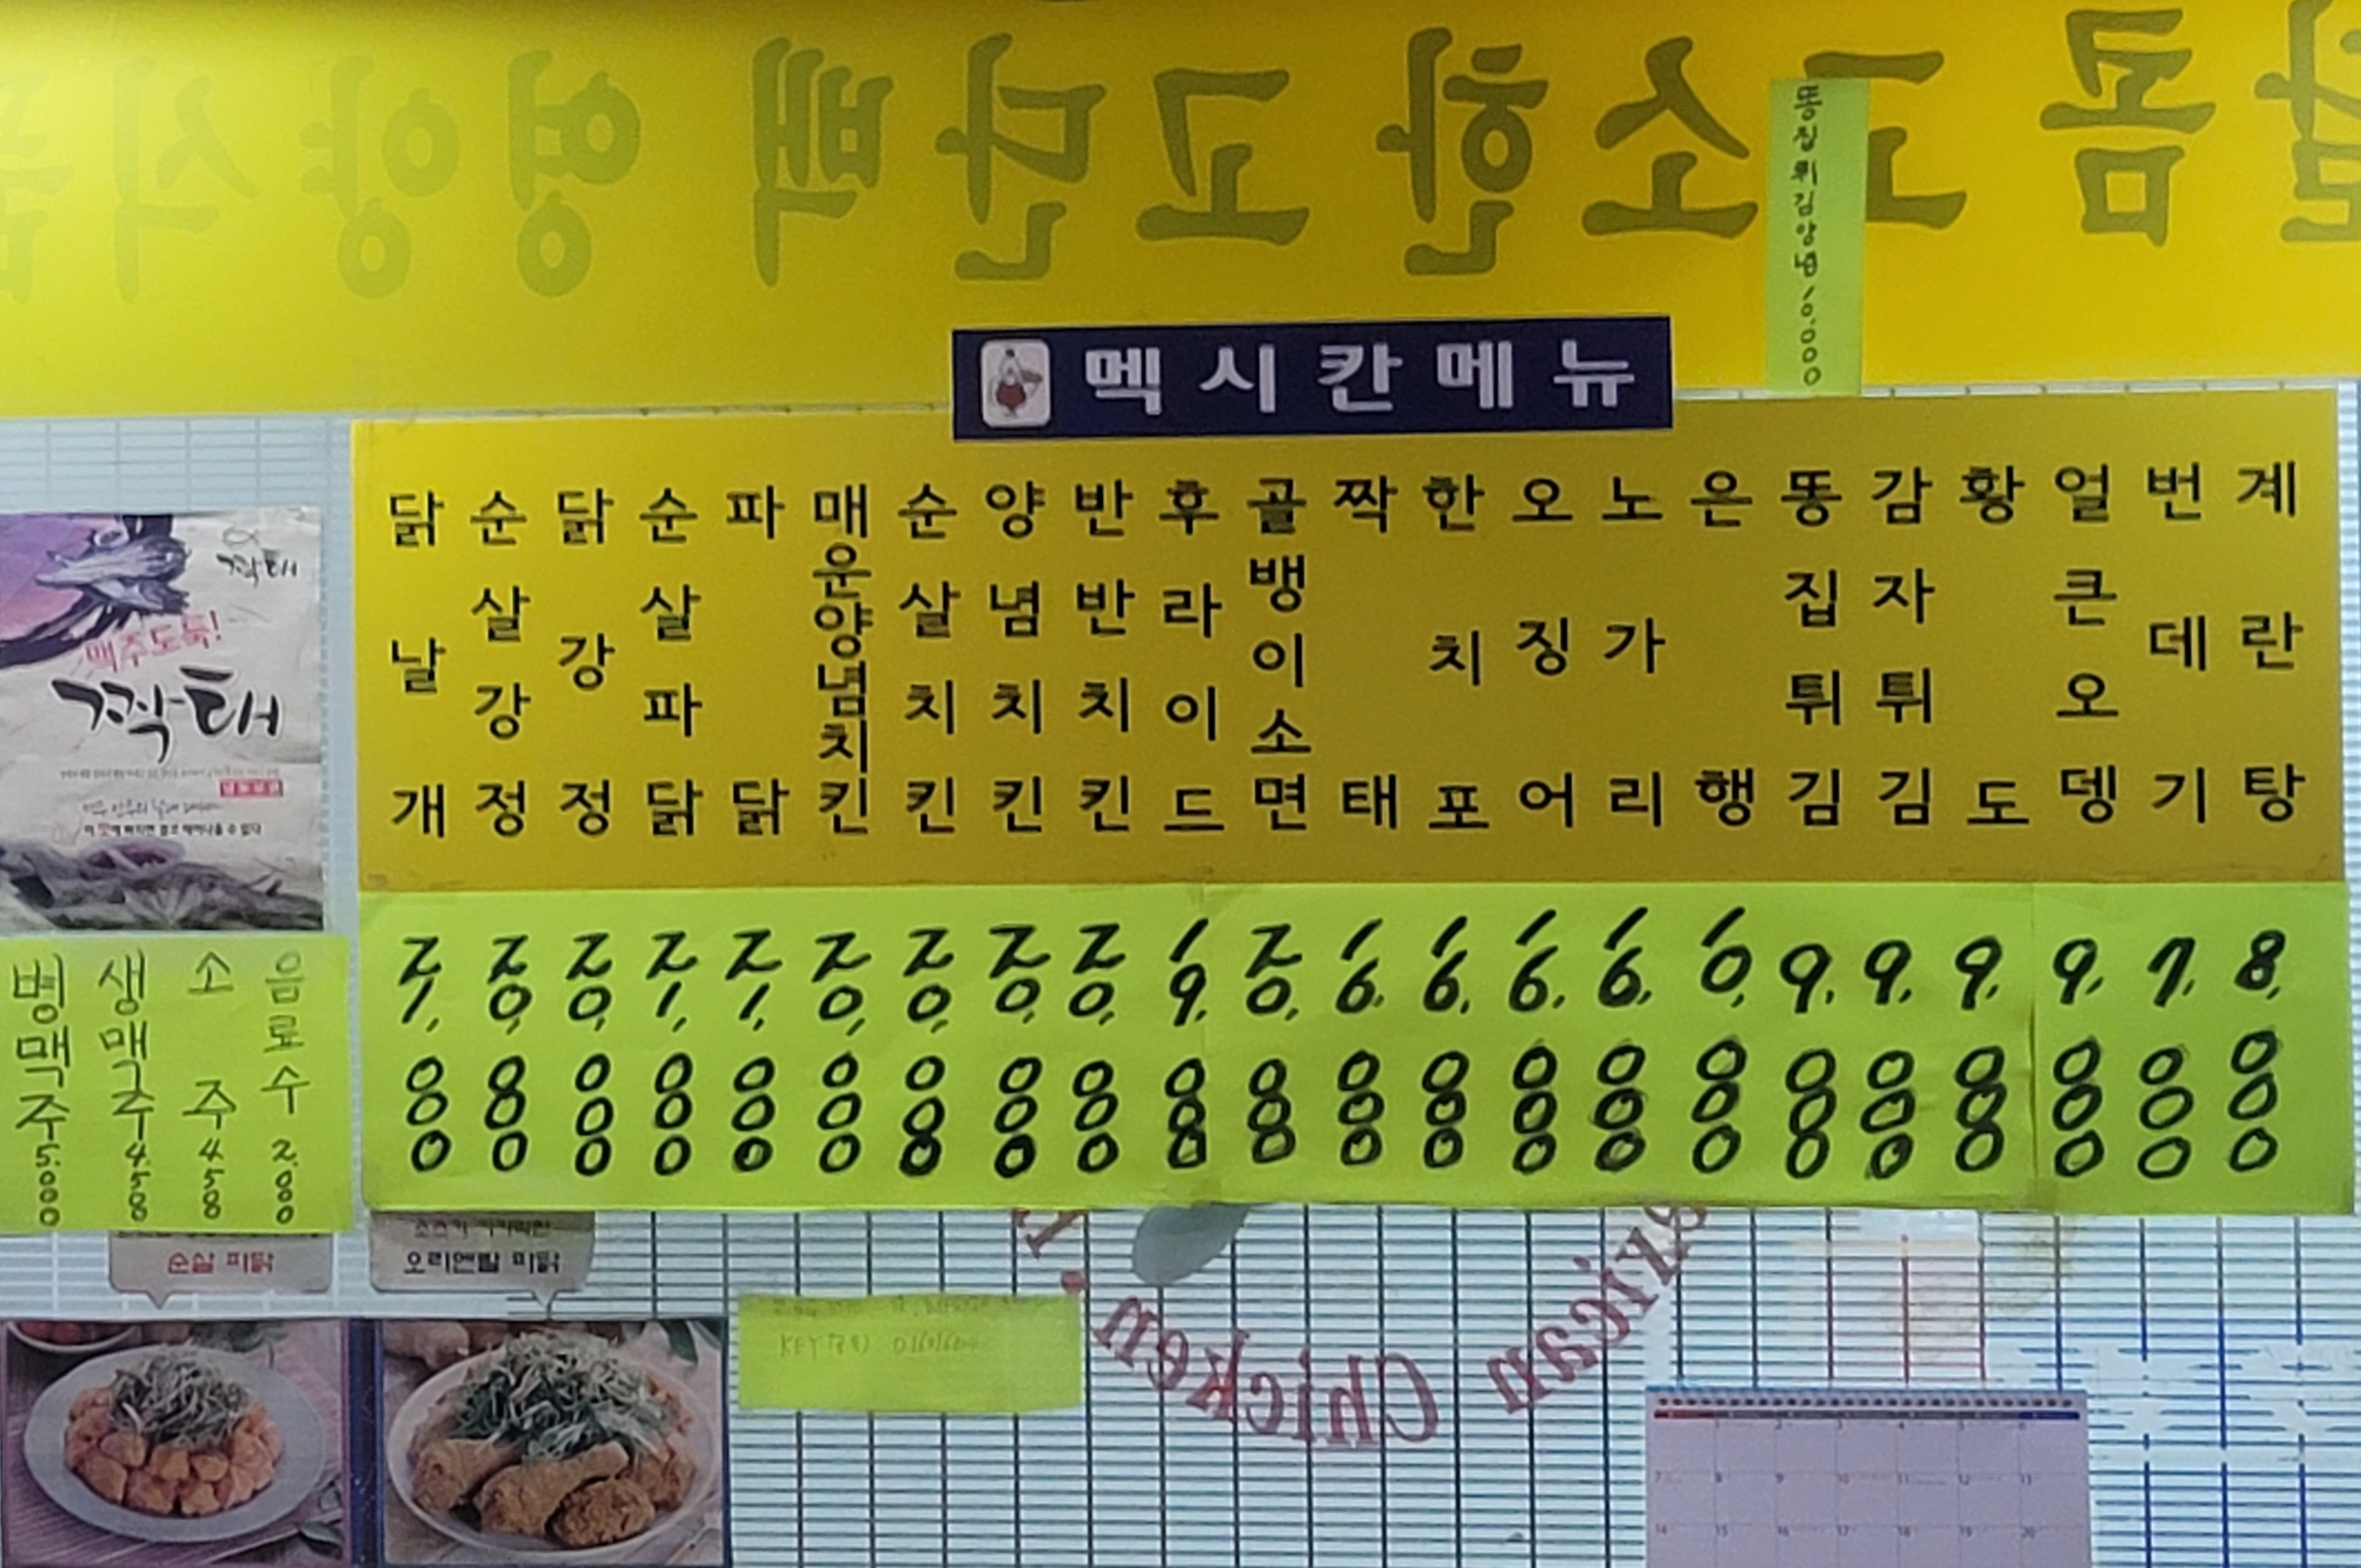 담콤 고소한 고단백 영양식품
똥집튀김양념 10,000
멕시칸메뉴
닭날개 21,000
순살강정 20,000
닭강정 20,000
순살파닭 21,000
파닭 21,000
매운양념치킨 20,000
순살치킨 20,000
양념치킨 20,000
반반치킨 20,000
후라이드 19,000
골뱅이소면 20,000
짝태 16,000
한치포 16,000
오징어 16,000
노가리 16,000
은행 10,000
똥집튀김 9,000
감자튀김 9,000
황도 9,000
얼큰오뎅 9,000
번데기 7,000
계란탕 8,000
짝태
맥주도둑!
짝태
병맥주 5.000
생맥주 4.50
소주 4.50
음료수 2.000
순살 파닭
오리엔탈 파닭
Mexican Chicken